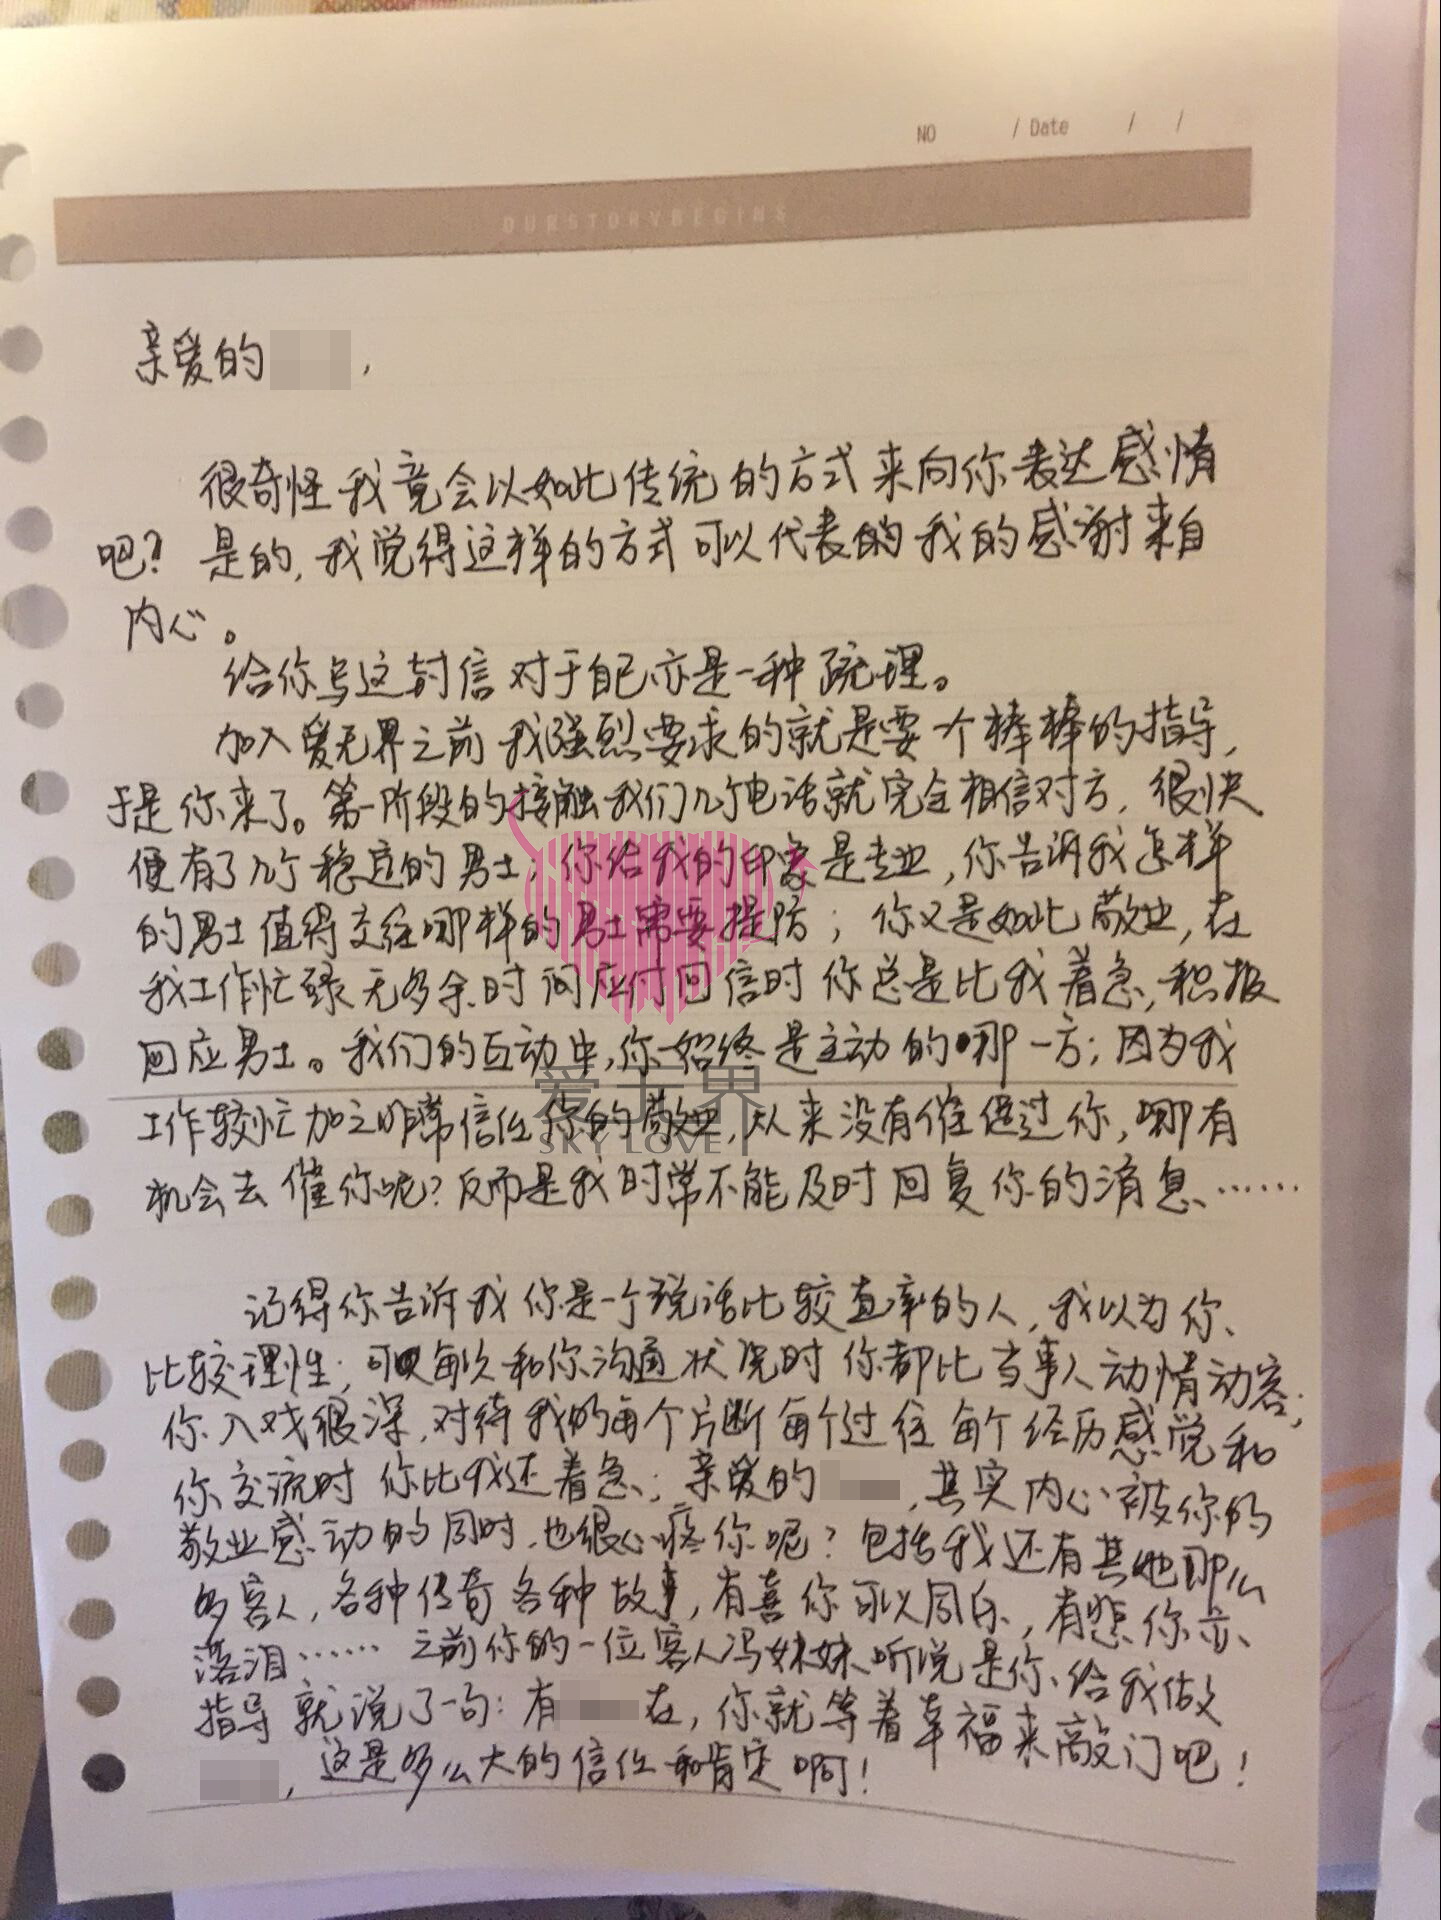 NO / Date / /
OURSTORYBEGINS
亲爱的 ,
很奇怪我竟会以如此传统的方式来向你表达感情
吧？是的,我觉得这样的方式可以代表的我的感谢来自
内心。
给你写这封信对于自己亦是一种疏理。
加入爱无界之前我强烈要求的就是要一个棒棒的指导,
于是你来了。第一阶段的接触我们几个电话就完全相信对方,很快
便有了几个稳定的男士,你给我的印象是专业,你告诉我怎样
的男士值得交往哪样的男士需要提防；你又是如此敬业,在
我工作忙碌无多余时间应付回信时你总是比我着急,积极
回应男士。我们的互动中,你始终是主动的那一方；因为我
爱无界
工作较忙加之非常信任你的敬业,从来没有催促过你,哪有
SKY LOVE
机会去催你呢？反而是我时常不能及时回复你的消息……
记得你告诉我你是一个说话比较直率的人,我以为你
比较理性；可每次和你沟通状况时你都比当事人动情动容；
你入戏很深,对待我的每个片断每个过往每个经历感觉和
你交流时你比我还着急；亲爱的 ,其实内心被你的
敬业感动的同时,也很心疼你呢？包括我还有其他那么
多客人,各种传奇各种故事,有喜你可以同乐,有悲你亦
落泪……之前你的一位客人冯妹妹听说是你给我做
指导就说了一句：有 在,你就等着幸福来敲门吧！
,这是多么大的信任和肯定啊！